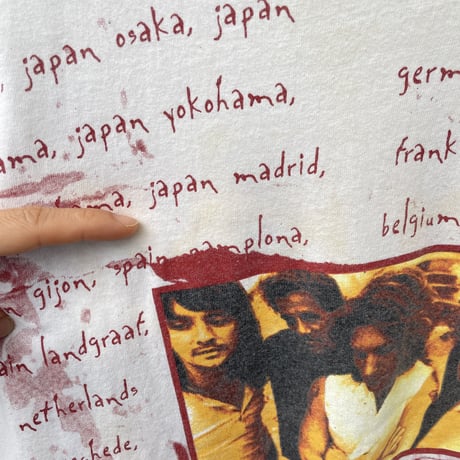 , japan osaka, japan
ama, japan yokohama, germ
ama, japan madrid, frank
gijon, spain pamplona, belgium
ain landgraaf,
netherlands
hede,